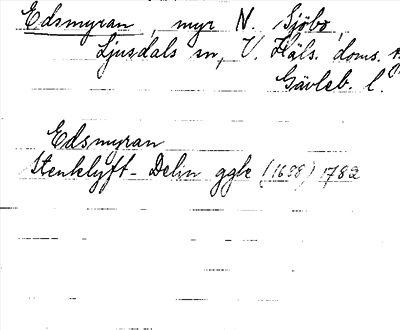 Edsmyran, myr N. Sjöbo,
Ljusdals sn, V. Häls. doms.
Gävleb. l.
Edsmyran
Stenklyft - Delin ggbe (1698) 1782